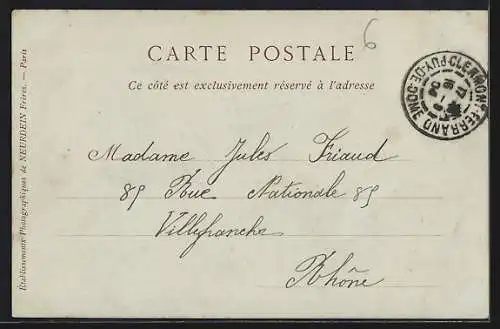 6
CARTE POSTALE
Ce côté est exclusivement réservé à l'adresse
CLERMONT-FERRAND PUY-DE-DOME
Madame Jules Friaud
85 Rue Nationale 85
Villefranche
Rhône
Établissements Photographiques de NEURDEIN Frères. — Paris